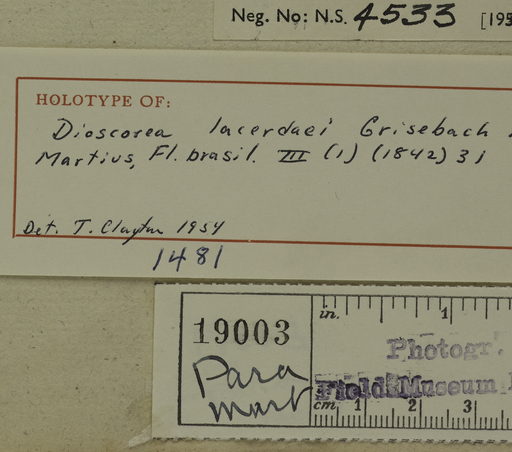 Neg. No: N.S. 4533 [195
HOLOTYPE OF:
Dioscorea lacerdaei Grisebach
Martius, Fl. brasil. III (1) (1842) 31
Det. T. Clayton 1954
1481
19003
Para
mart
in. 1
Photogr.
Field Museum
cm 1 2 3